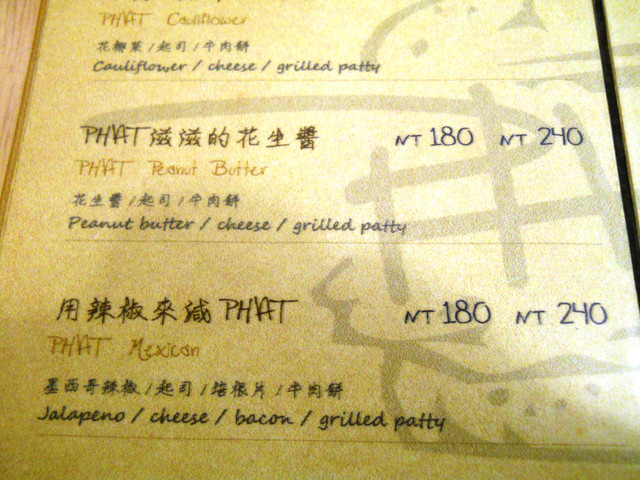 PHAT Cauliflower
花椰菜/起司/牛肉餅
Cauliflower / cheese / grilled patty
PHAT滋滋的花生醬 NT 180 NT 240
PHAT Peanut Butter
花生醬/起司/牛肉餅
Peanut butter / cheese / grilled patty
用辣椒來減PHAT NT 180 NT 240
PHAT Mexican
墨西哥辣椒/起司/培根片/牛肉餅
Jalapeno / cheese / bacon / grilled patty